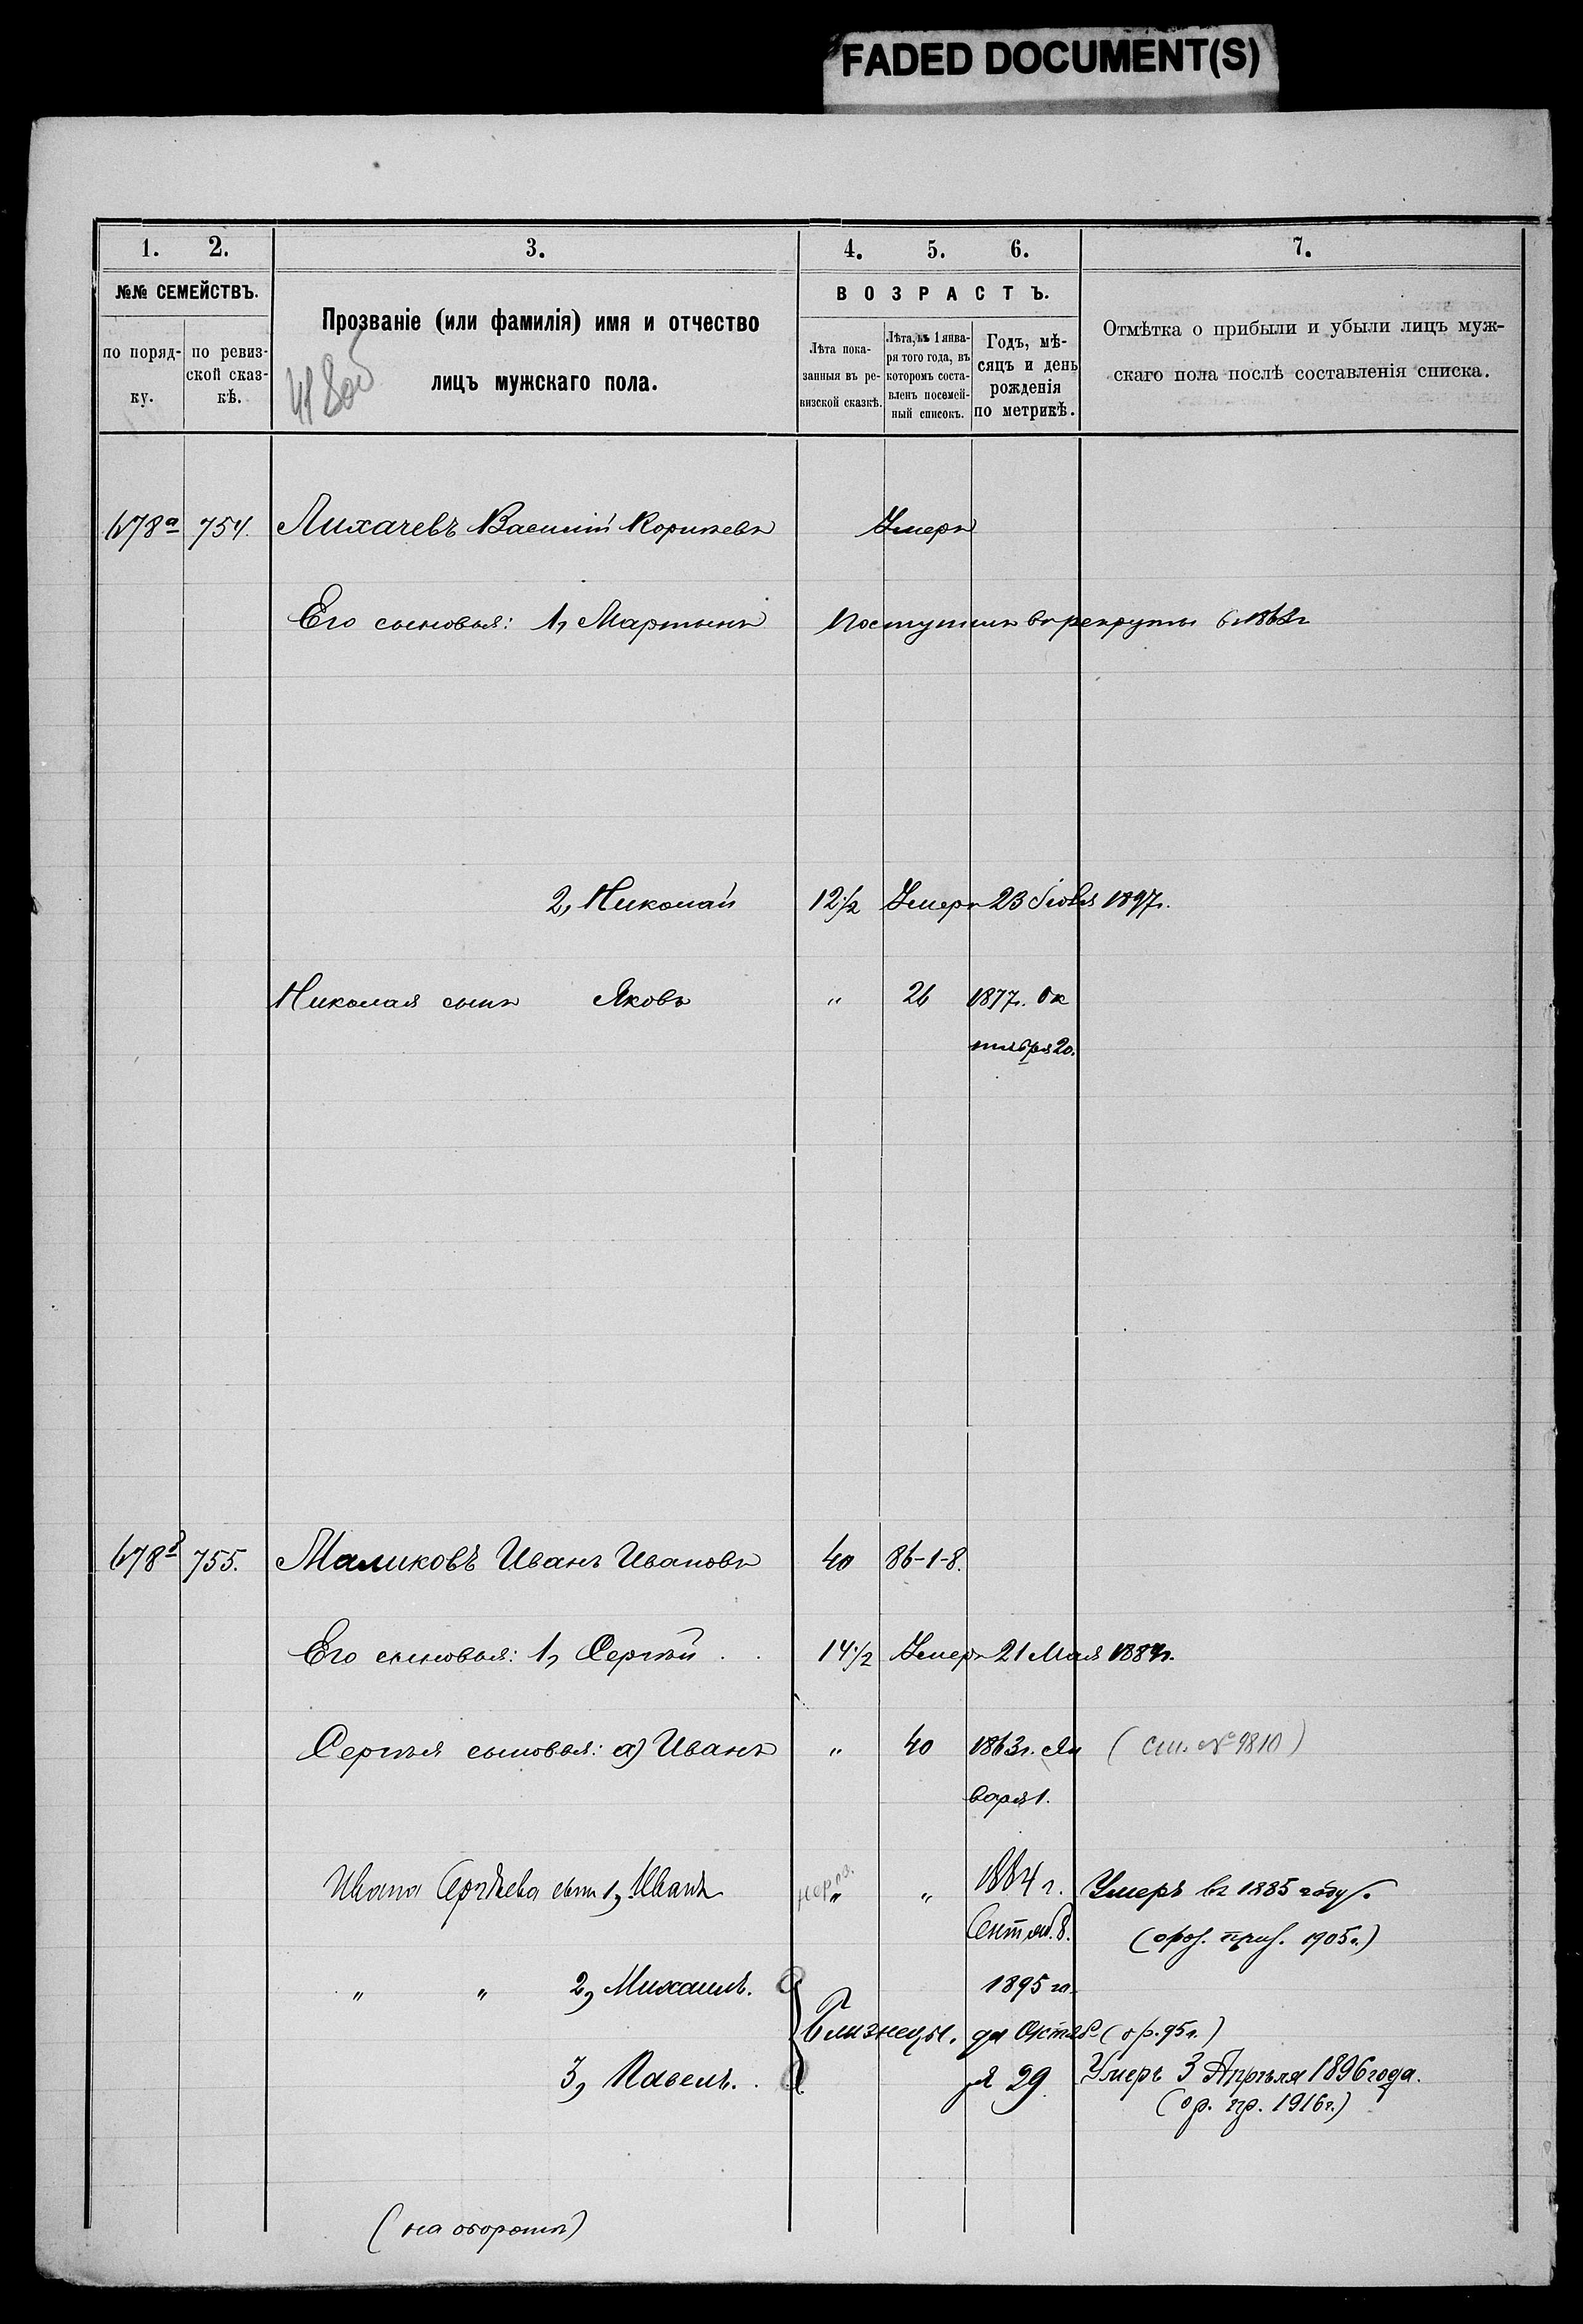 FADED DOCUMENT(S)
1. 2. 3. 4. 5. 6. 7.
№№ СЕМЕЙСТВЪ.
по поряд-
ку.
по ревиз-
ской сказ-
кѣ.
Прозваніе (или фамилія) имя и отчество
лицъ мужскаго пола.
ВОЗРАСТЪ.
Лѣта пока-
занныя въ ре-
визской сказкѣ.
Лѣта, къ 1 янва-
ря того года, въ
которомъ соста-
вленъ посемей-
ный списокъ.
Годъ, мѣ-
сяцъ и день
рожденія
по метрикѣ.
Отмѣтка о прибыли и убыли лицъ муж-
скаго пола послѣ составленія списка.
678а 754. Лихачевъ Василій Умеръ
Его сыновья: 1, Мартынъ Поступилъ въ рекруты
2, Николай 12½ Умеръ 23 1897г.
Николая сынъ Яковъ „ 26 1877г. Ок
тября 20.
678б 755. Маликовъ Иванъ Ивановъ 40 86-1-8.
Его сыновья: 1, Сергѣй 14½ Умеръ 21 Мая
Сергѣя сыновья: а) Иванъ „ 40 1863г. Ян (см. № 9810)
варя 1.
Ивана Сергѣева сынъ 1, Иванъ „ „ 1884 г. Умеръ въ 1885 году.
Сентяб. 8. 1905г.)
„ „ 2, Михаилъ. 1895 го
Близнецы. да Октяб (ор. 95г.)
3, Павелъ. ря 29. Умеръ 3 Апрѣля 1896 года.
(ор. пр. 1916г.)
(на оборотѣ)